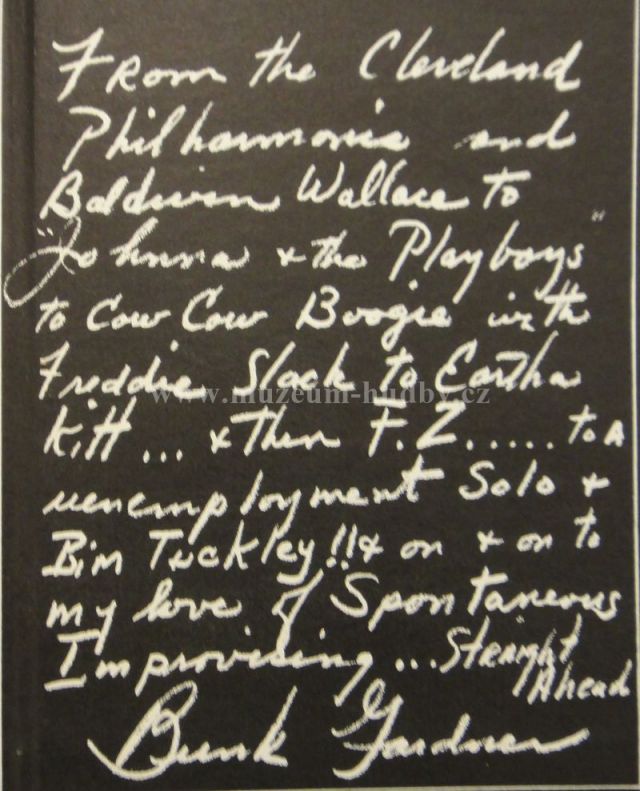 From the Cleveland
Philharmonic and
Baldwin Wallace to
"Johnna & the Playboys"
to Cow Cow Boogie with
Freddie Slack to Eartha
www.muzeum-hudby.cz
Kitt... & then F.Z...... to a
unemployment Solo &
Bim Tuckley!! & on & on to
my love of Spontaneous
Improvising... Straight
Ahead
Bunk Gardner